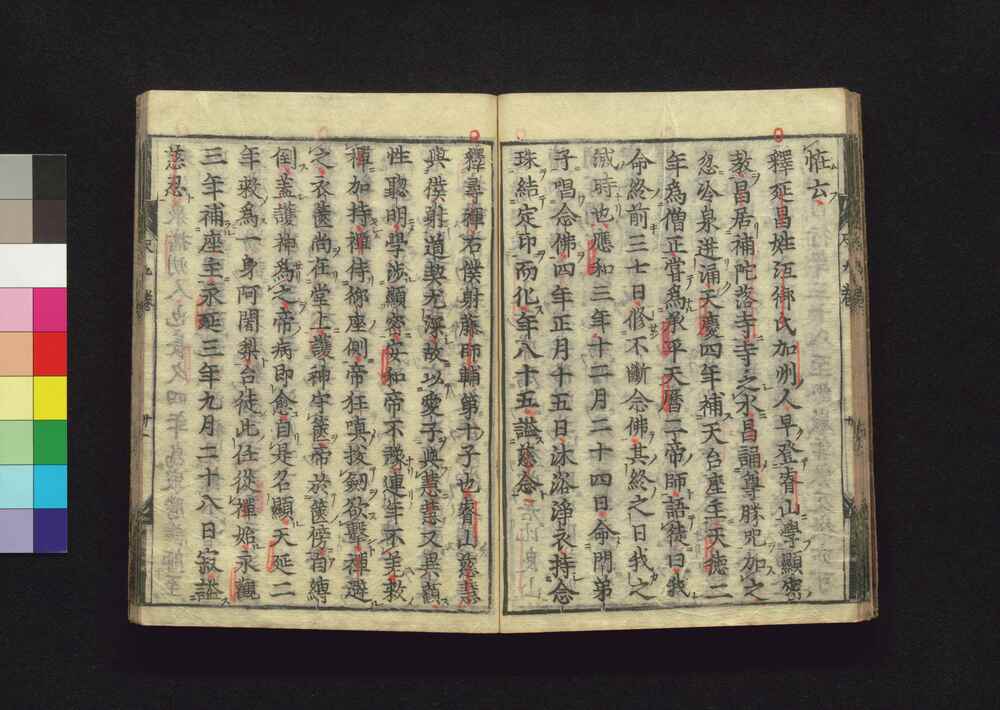 恠云
釋延昌姓江御氏加州人早登睿山學顯密
教昌居補陀落寺寺之水昌誦尊勝咒加之
忽冷泉迸涌天慶四年補天台座主天德二
年為僧正嘗為承平天曆二帝師語徒曰我
命終前三七日修不斷念佛其終之日我之
滅時也應和三年十二月二十四日命門弟
子唱念佛四年正月十五日沐浴淨衣持念
珠結定印而化年八十五謚慈念
釋尋禪右僕射藤師輔第十子也睿山慈慧
與僕射道契尤深故以愛子與慧慧又異顧
性聰明學涉顯密安和帝不豫連年不至救
禪加持禪侍御座側帝狂嗔拔劒欲擊禪避
之衣篋尚在堂上護神守篋帝於篋傍自縛
倒蓋護神為之帝病即愈自是名顯天延二
年敕為一身阿闍梨台徒此任從禪始永觀
三年補座主永延三年九月二十八日寂謚
慈忍